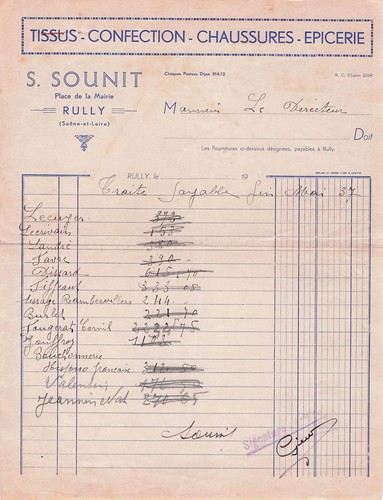 TISSUS - CONFECTION - CHAUSSURES - EPICERIE
S. SOUNIT
Place de la Mairie
RULLY
(Saône-et-Loire)
Chèques Postaux Dijon 314.12
R. C. Chalon 2359
Monsieur Le Directeur
Doit
Les Fournitures ci-dessous désignées, payables à Rully.
RULLY, le 19
Traite payable fin Mai 37
Lecuyer 373
Lecrivain 153
Landré 350
Favre 390
Dissard 615,70
Tiffeau 333 05
Rambervillers 244.
Burlet 221,70
Cornil 2222,75
Jouffroy
Bouchonnerie
Hispano française 312 50
Valentin 176 50
Jeannin 270 65
Sounit
Signature